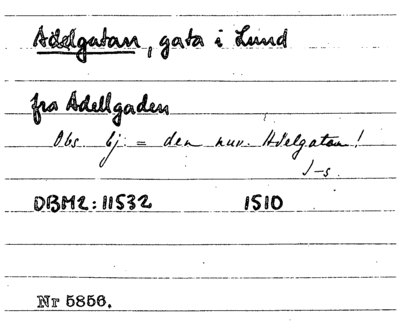 Adelgatan, gata i Lund
fra Adellgaden
Obs. Ej = den nuv. Adelgatan!
J-s.
DBM2: 11532 1510
Nr 5856.